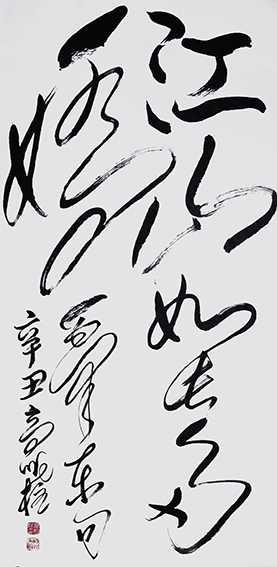 江山如此多
娇
毛泽东句
辛丑高